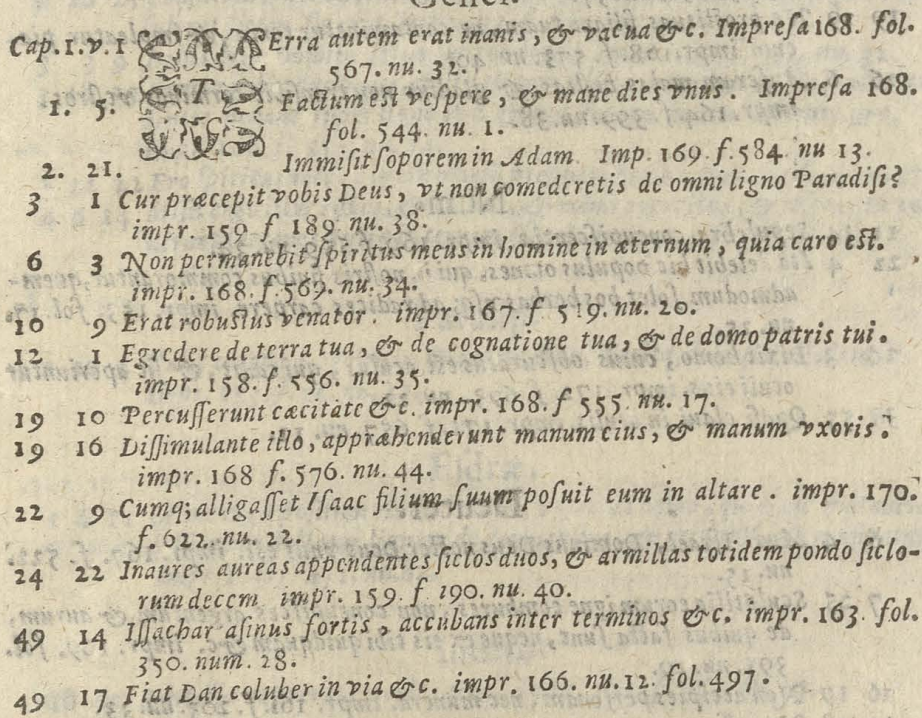 Genes.
Cap.1.v.1 TErra autem erat inanis, & vacua &c. Impresa 168. fol.
567. nu. 32.
1. 5. Factum est vespere, & mane dies vnus. Impresa 168.
fol. 544. nu. 1.
2. 21. Immisit soporem in Adam Imp. 169 f. 584 nu 13.
3 1 Cur præcepit vobis Deus, vt non comederetis de omni ligno Paradisi?
impr. 159 f 189 nu. 38.
6 3 Non permanebit spiritus meus in homine in æternum, quia caro est.
impr. 168. f. 569. nu. 34.
10 9 Erat robustus venator. impr. 167. f 519. nu. 20.
12 1 Egredere de terra tua, & de cognatione tua, & de domo patris tui.
impr. 158. f. 556. nu. 35.
19 10 Percusserunt cæcitate &c. impr. 168. f 555 nu. 17.
19 16 Dissimulante illo, appræhenderunt manum eius, & manum vxoris.
impr. 168 f. 576. nu. 44.
22 9 Cumq; alligasset Isaac filium suum posuit eum in altare. impr. 170.
f. 622. nu. 22.
24 22 Inaures aureas appendentes siclos duos, & armillas totidem pondo siclo-
rum decem impr. 159. f 190. nu. 40.
49 14 Issachar asinus fortis, accubans inter terminos &c. impr. 163. fol.
350. num. 28.
49 17 Fiat Dan coluber in via &c. impr. 166. nu. 12 fol. 497.